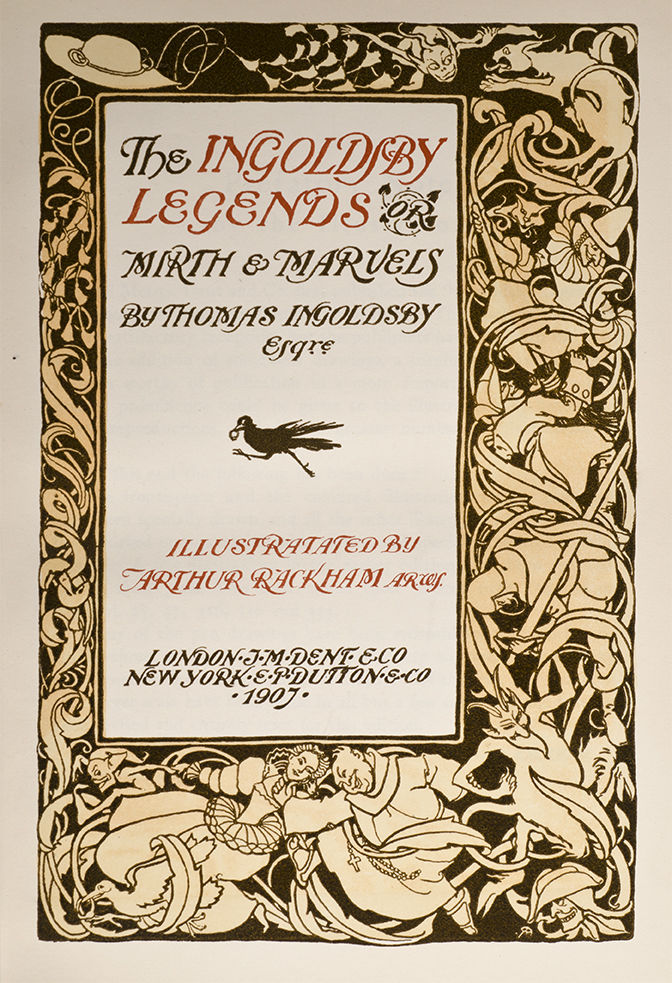 The INGOLDSBY
LEGENDS OR
MIRTH & MARVELS
BY THOMAS INGOLDSBY
Esqre
ILLUSTRATATED BY
ARTHUR RACKHAM ARWS.
LONDON·J·M·DENT·&·CO
NEW YORK·E·P·DUTTON·&·CO
·1907·